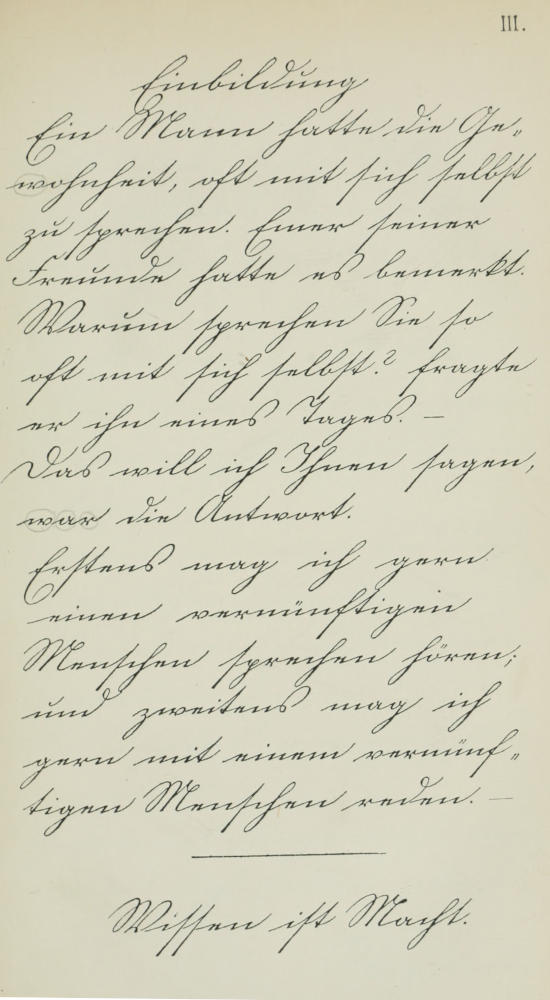 III.
Einbildung
Ein Mann hatte die Ge=
wohnheit, oft mit sich selbst
zu sprechen. Einer seiner
Freunde hatte es bemerkt.
Warum sprechen Sie so
oft mit sich selbst? fragte
er ihn eines Tages. —
Das will ich Ihnen sagen,
war die Antwort.
Erstens mag ich gern
einen vernünftigen
Menschen sprechen hören;
und zweitens mag ich
gern mit einem vernünf=
tigen Menschen reden. —
Wissen ist Macht.